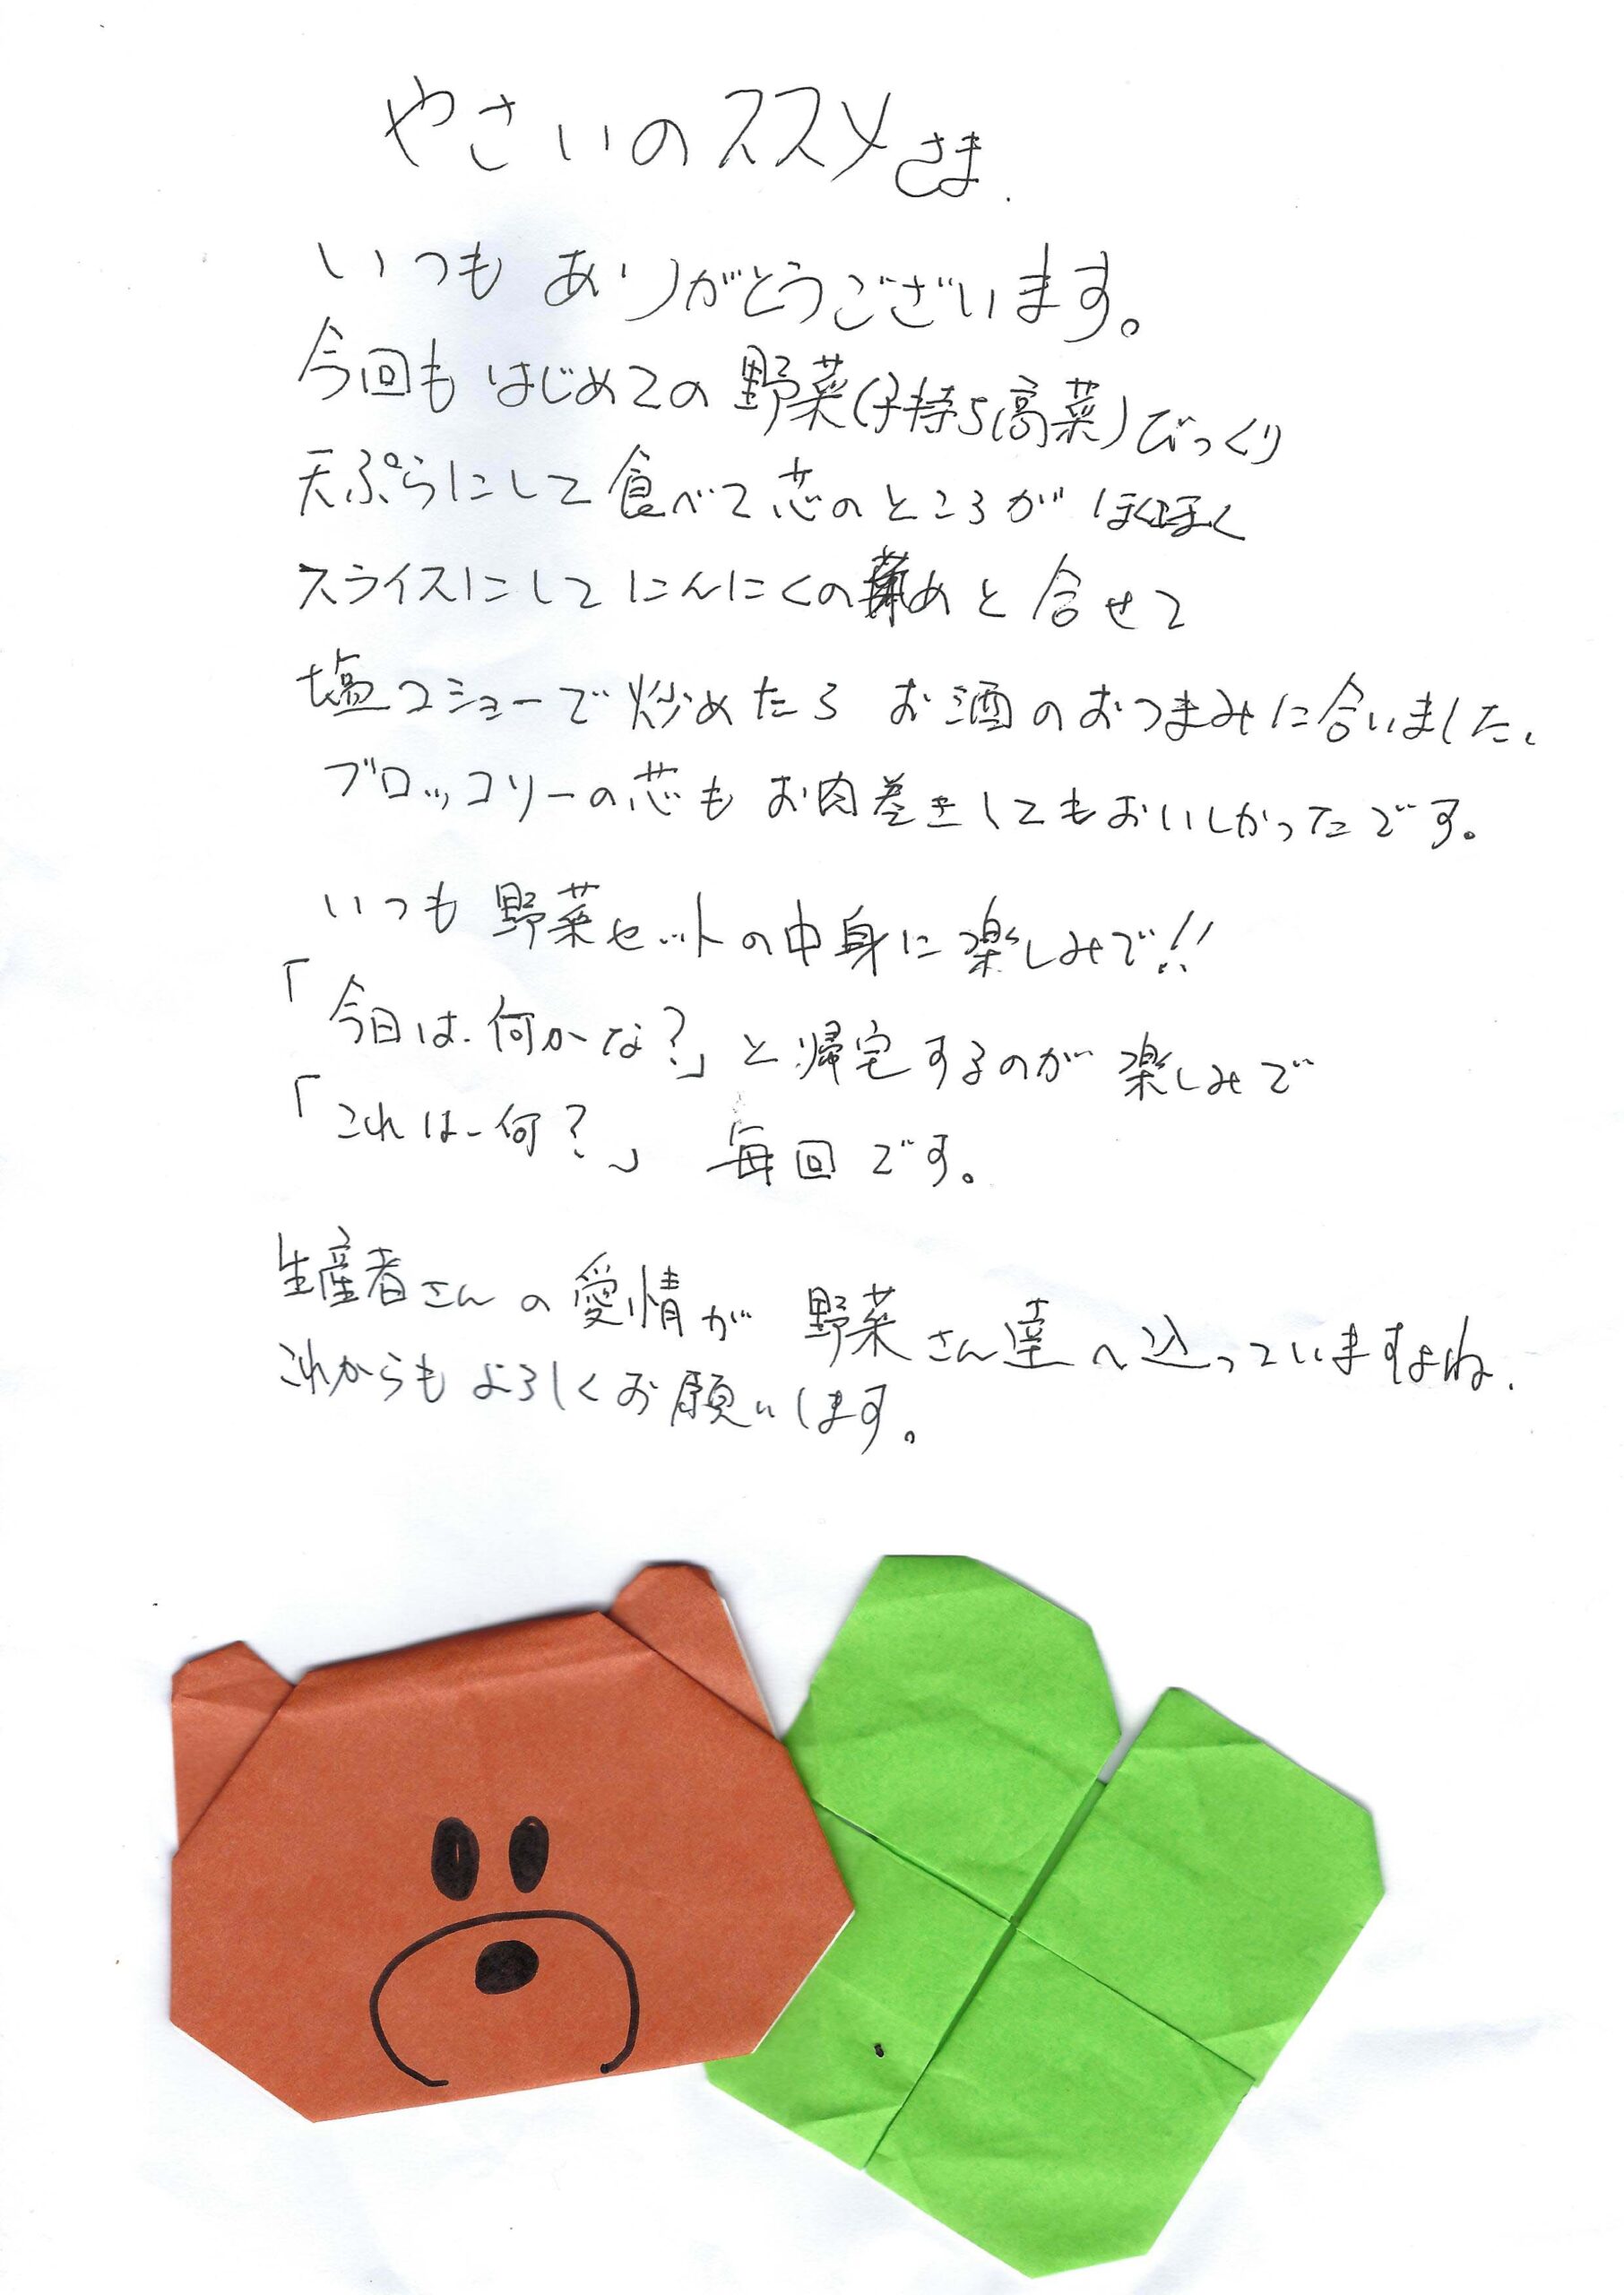 やさいのススメさま.
いつも ありがとうございます。
今回も はじめての 野菜(子持ち高菜)びっくり
天ぷらにして 食べて 芯のところが ほくほく
スライスにして にんにくの めと 合せて
塩コショーで 炒めたら お酒のおつまみに合いました、
ブロッコリーの芯も お肉巻きしてもおいしかったです。
いつも 野菜セットの中身に楽しみで!!
「今日は、何かな?」と帰宅するのが 楽しみで
「これは、何?」 毎回です。
生産者さんの愛情が 野菜さん達へ込っていますよね.
これからもよろしくお願いします。